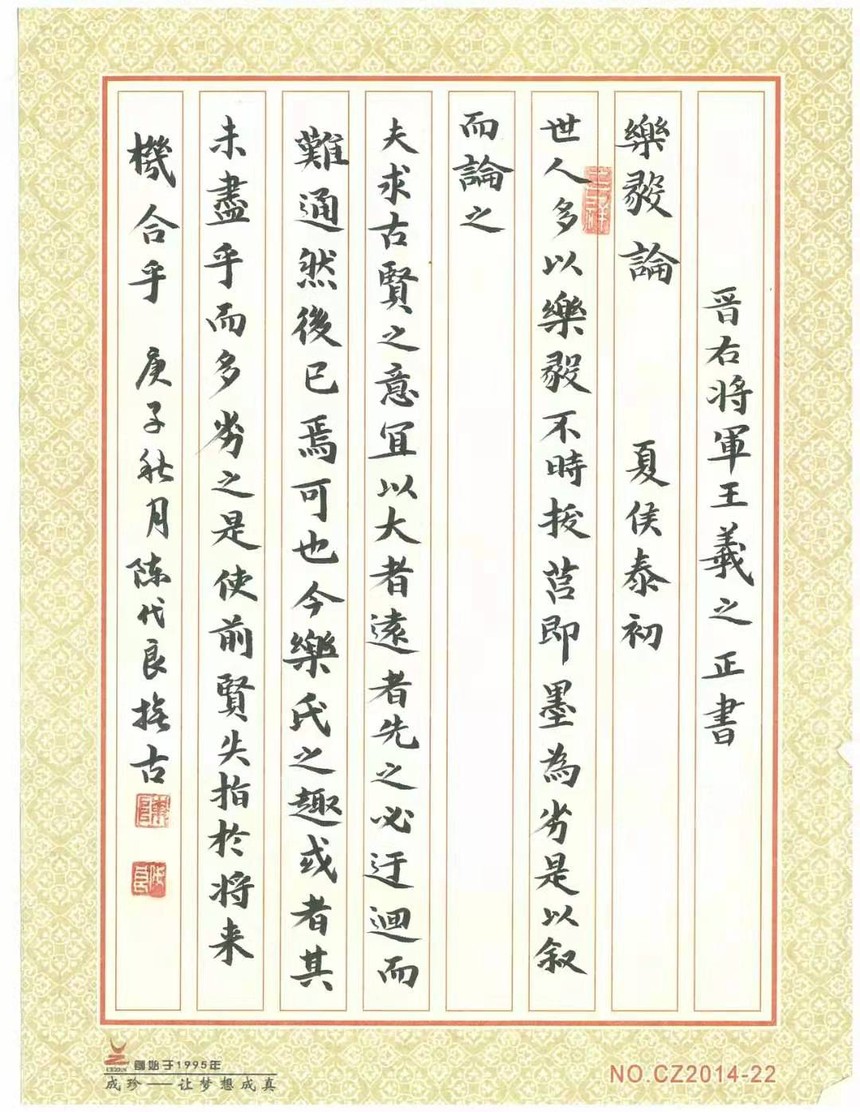 晋右将軍王羲之正書
樂毅論 夏侯泰初
世人多以樂毅不時拔莒即墨為劣是以叙
而論之
夫求古賢之意宜以大者遠者先之必迂迴而
難通然後已焉可也今樂氏之趣或者其
未盡乎而多劣之是使前賢失指於将来
機合乎 庚子秋月陳代良撫古
始于1995年
成珍——让梦想成真
NO.CZ2014-22